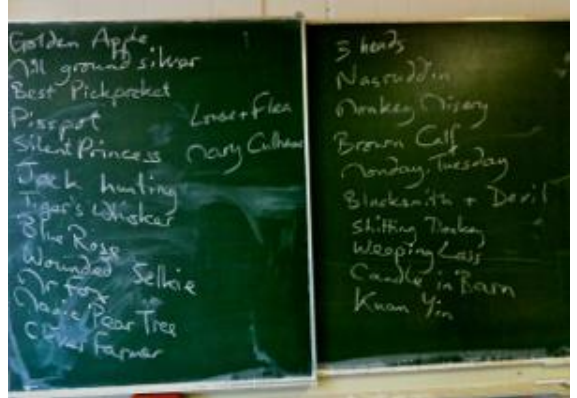 Golden Apple
Mill ground silver
Best Pickpocket
Pisspot
Silent Princess
Jack hunting
Tiger's Whisker
Blue Rose
Wounded Selkie
Mr Fox
Magic Pear Tree
Clever Farmer
Louse + Flea
Mary Culhane
3 heads
Nasruddin
Monkey Misery
Brown Calf
Monday, Tuesday
Blacksmith + Devil
Shitting Donkey
Weeping Lass
Candle in Barn
Kuan Yin